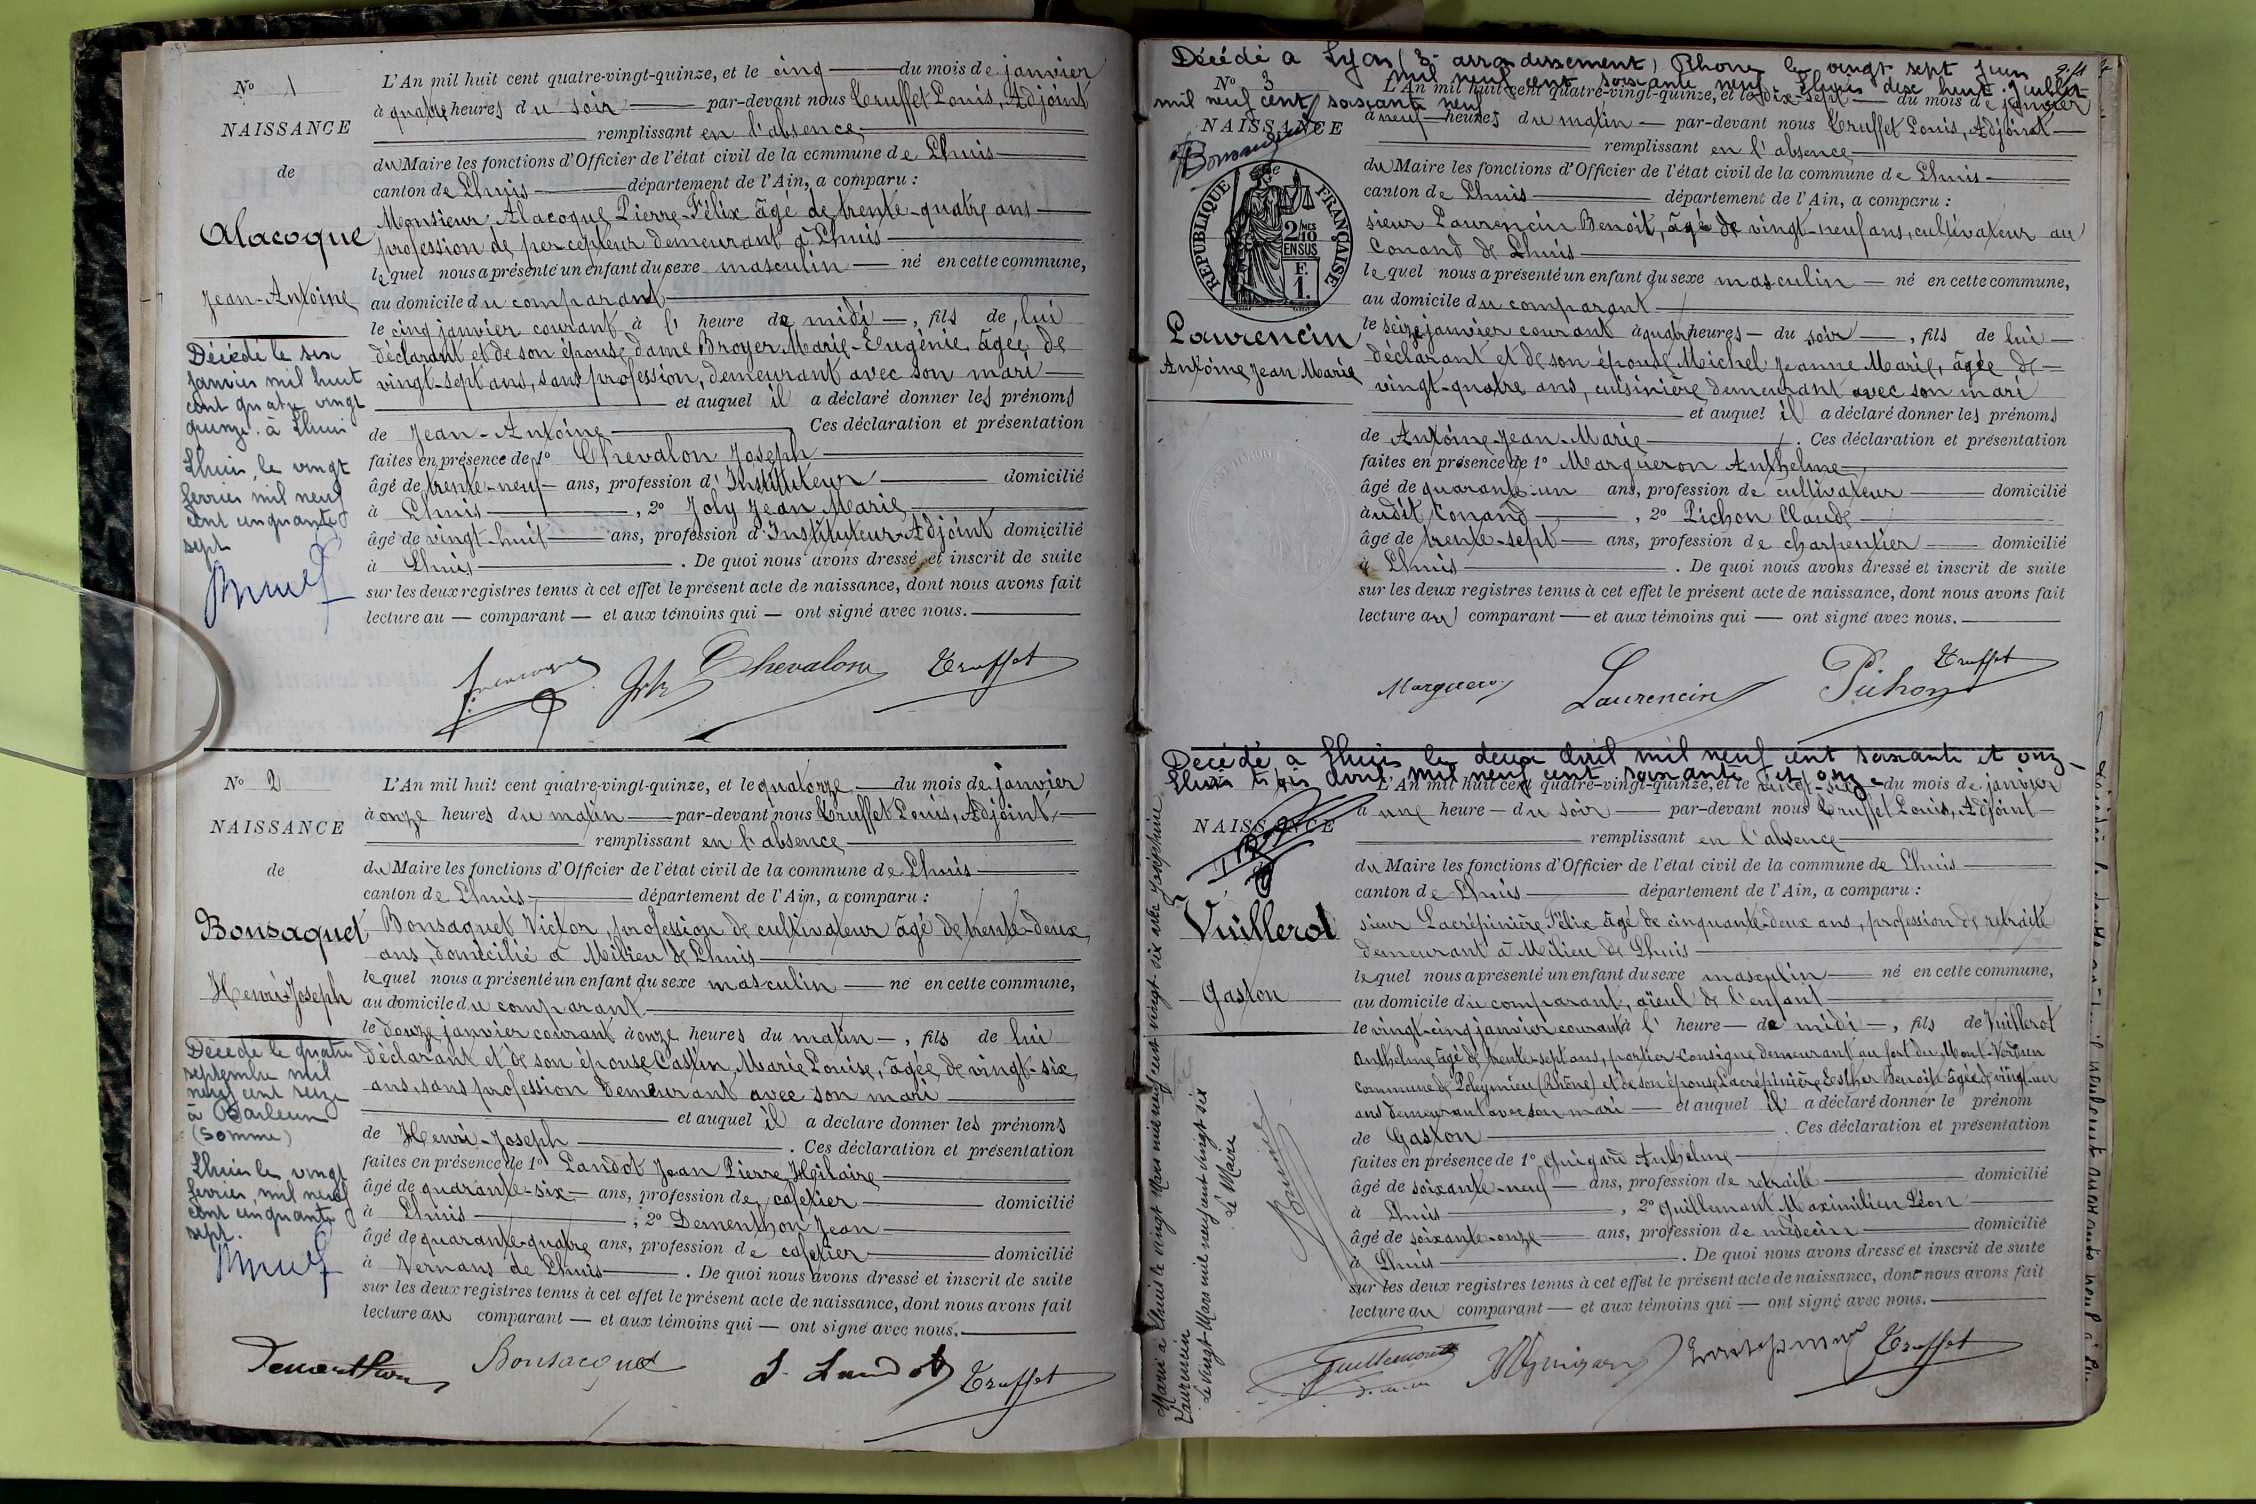 Nº 1
NAISSANCE
de
Alacoque
Jean-Antoine
Décédé le six
janvier mil huit
cent quatre vingt
quinze à Lhuis
Lhuis le vingt
fevrier mil neuf
cent cinquante
sept
L'An mil huit cent quatre-vingt-quinze, et le cinq du mois de janvier
à quatre heures du soir par-devant nous Truffet Louis, Adjoint
remplissant en l'absence
du Maire les fonctions d'Officier de l'état civil de la commune de Lhuis
canton de Lhuis département de l'Ain, a comparu :
Monsieur Alacoque Pierre-Félix âgé de trente-quatre ans
profession de percepteur demeurant à Lhuis
lequel nous a présenté un enfant du sexe masculin né en cette commune,
au domicile du comparant
le cinq janvier courant à l' heure de midi , fils de lui
déclarant et de son épouse dame Broyer Marie-Eugénie âgée de
vingt-sept ans, sans profession, demeurant avec son mari
et auquel il a déclaré donner les prénoms
de Jean-Antoine Ces déclaration et présentation
faites en présence de 1º Chevalon Joseph
âgé de trente-neuf ans, profession d'Instituteur domicilié
à Lhuis , 2º Joly Jean Marie
âgé de vingt-huit ans, profession d'Instituteur-Adjoint domicilié
à Lhuis . De quoi nous avons dressé et inscrit de suite
sur les deux registres tenus à cet effet le présent acte de naissance, dont nous avons fait
lecture au — comparant — et aux témoins qui — ont signé avec nous.
Chevalon Truffet
Nº 2
NAISSANCE
de
Bonsaquet
Henri-Joseph
Décédé le quatre
septembre mil
neuf cent seize
à Barleux
(Somme)
Lhuis le vingt
fevrier mil neuf
cent cinquante
sept.
L'An mil huit cent quatre-vingt-quinze, et le quatorze du mois de janvier
à onze heures du matin par-devant nous Truffet Louis, Adjoint
remplissant en l'absence
du Maire les fonctions d'Officier de l'état civil de la commune de Lhuis
canton de Lhuis département de l'Ain, a comparu :
Bonsaquet Victor, profession de cultivateur âgé de trente-deux
ans, domicilié à Milieu de Lhuis
lequel nous a présenté un enfant du sexe masculin né en cette commune,
au domicile du comparant
le douze janvier courant à onze heures du matin , fils de lui
déclarant et de son épouse Castin Marie Louise, âgée de vingt-six
ans, sans profession demeurant avec son mari
et auquel il a déclaré donner les prénoms
de Henri-Joseph . Ces déclaration et présentation
faites en présence de 1º Landot Jean Pierre Hilaire
âgé de quarante-six ans, profession de cafetier domicilié
à Lhuis ; 2º Dementhon Jean
âgé de quarante-quatre ans, profession de cafetier domicilié
à Vernans de Lhuis . De quoi nous avons dressé et inscrit de suite
sur les deux registres tenus à cet effet le présent acte de naissance, dont nous avons fait
lecture au comparant — et aux témoins qui — ont signé avec nous.
Dementhon Bonsacquet J. Landot Truffet
Décédé à Lyon (3e arrondissement) Rhone le vingt sept juin
mil neuf cent soixante neuf. Lhuis le dix huit juillet
mil neuf cent soixante neuf
Nº 3
NAISSANCE
de
REPUBLIQUE FRANÇAISE
2/10
EN SUS
F.
1.
Laurencin
Antoine Jean Marie
L'An mil huit cent quatre-vingt-quinze, et le dix-sept du mois de janvier
à neuf heures du matin par-devant nous Truffet Louis, Adjoint
remplissant en l'absence
du Maire les fonctions d'Officier de l'état civil de la commune de Lhuis
canton de Lhuis département de l'Ain, a comparu :
sieur Laurencin Benoit, âgé de vingt-neuf ans, cultivateur au
Conand de Lhuis
lequel nous a présenté un enfant du sexe masculin né en cette commune,
au domicile du comparant
le seize janvier courant à quatre heures du soir , fils de lui
déclarant et de son épouse Michel Jeanne Marie, âgée de
vingt-quatre ans, cuisinière demeurant avec son mari
et auquel il a déclaré donner les prénoms
de Antoine-Jean-Marie . Ces déclaration et présentation
faites en présence de 1º Margueron Anthelme
âgé de quarante-un ans, profession de cultivateur domicilié
audit Conand , 2º Pichon Claude
âgé de trente-sept ans, profession de charpentier domicilié
à Lhuis . De quoi nous avons dressé et inscrit de suite
sur les deux registres tenus à cet effet le présent acte de naissance, dont nous avons fait
lecture au comparant — et aux témoins qui — ont signé avec nous.
Laurencin Pichon Truffet
Décédé à Lhuis le deux Avril mil neuf cent soixante et onze
Lhuis trois avril mil neuf cent soixante et onze
NAISSANCE
Vuillerot
Gaston
Marié à Lhuis le vingt Mars mil neuf cent vingt six avec Joséphine
Laurencin
Le vingt Mars mil neuf cent vingt six
Le Maire
L'An mil huit cent quatre-vingt-quinze, et le vingt-six du mois de janvier
à une heure du soir par-devant nous Truffet Louis, Adjoint
remplissant en l'absence
du Maire les fonctions d'Officier de l'état civil de la commune de Lhuis
canton de Lhuis département de l'Ain, a comparu :
sieur Lacrépinière Félix âgé de cinquante-deux ans, profession de retraité
demeurant à Milieu de Lhuis
lequel nous a présenté un enfant du sexe masculin né en cette commune,
au domicile du comparant, aïeul de l'enfant
le vingt-cinq janvier courant à l' heure de midi , fils de Vuillerot
Anthelme âgé de trente-sept ans, portier-consigne demeurant au fort du Mont-Verdun
commune de Poleymieu (Rhône) et de son épouse Lacrépinière Esther Benoite âgée de vingt-un
ans demeurant avec son mari et auquel il a déclaré donner le prénom
de Gaston . Ces déclaration et présentation
faites en présence de 1º Guigard Anthelme
âgé de soixante-neuf ans, profession de retraité domicilié
à Lhuis , 2º Guillemant Maximilien Léon
âgé de soixante-onze ans, profession de médecin domicilié
à Lhuis . De quoi nous avons dressé et inscrit de suite
sur les deux registres tenus à cet effet le présent acte de naissance, dont nous avons fait
lecture au comparant — et aux témoins qui — ont signé avec nous.
Truffet